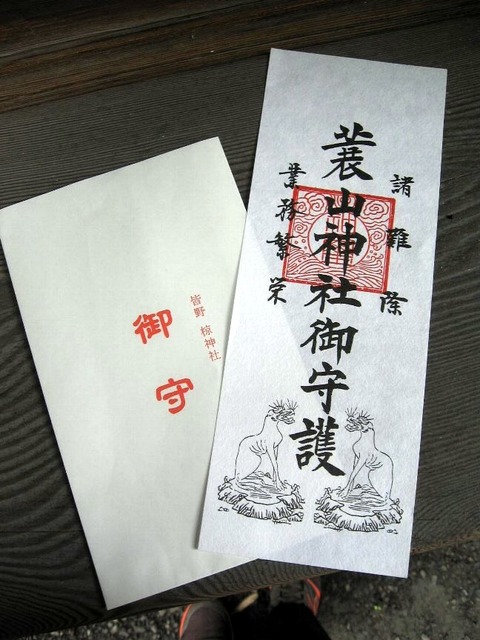 諸難除
蓑山神社御守護
業務繁栄
皆野 椋神社
御守